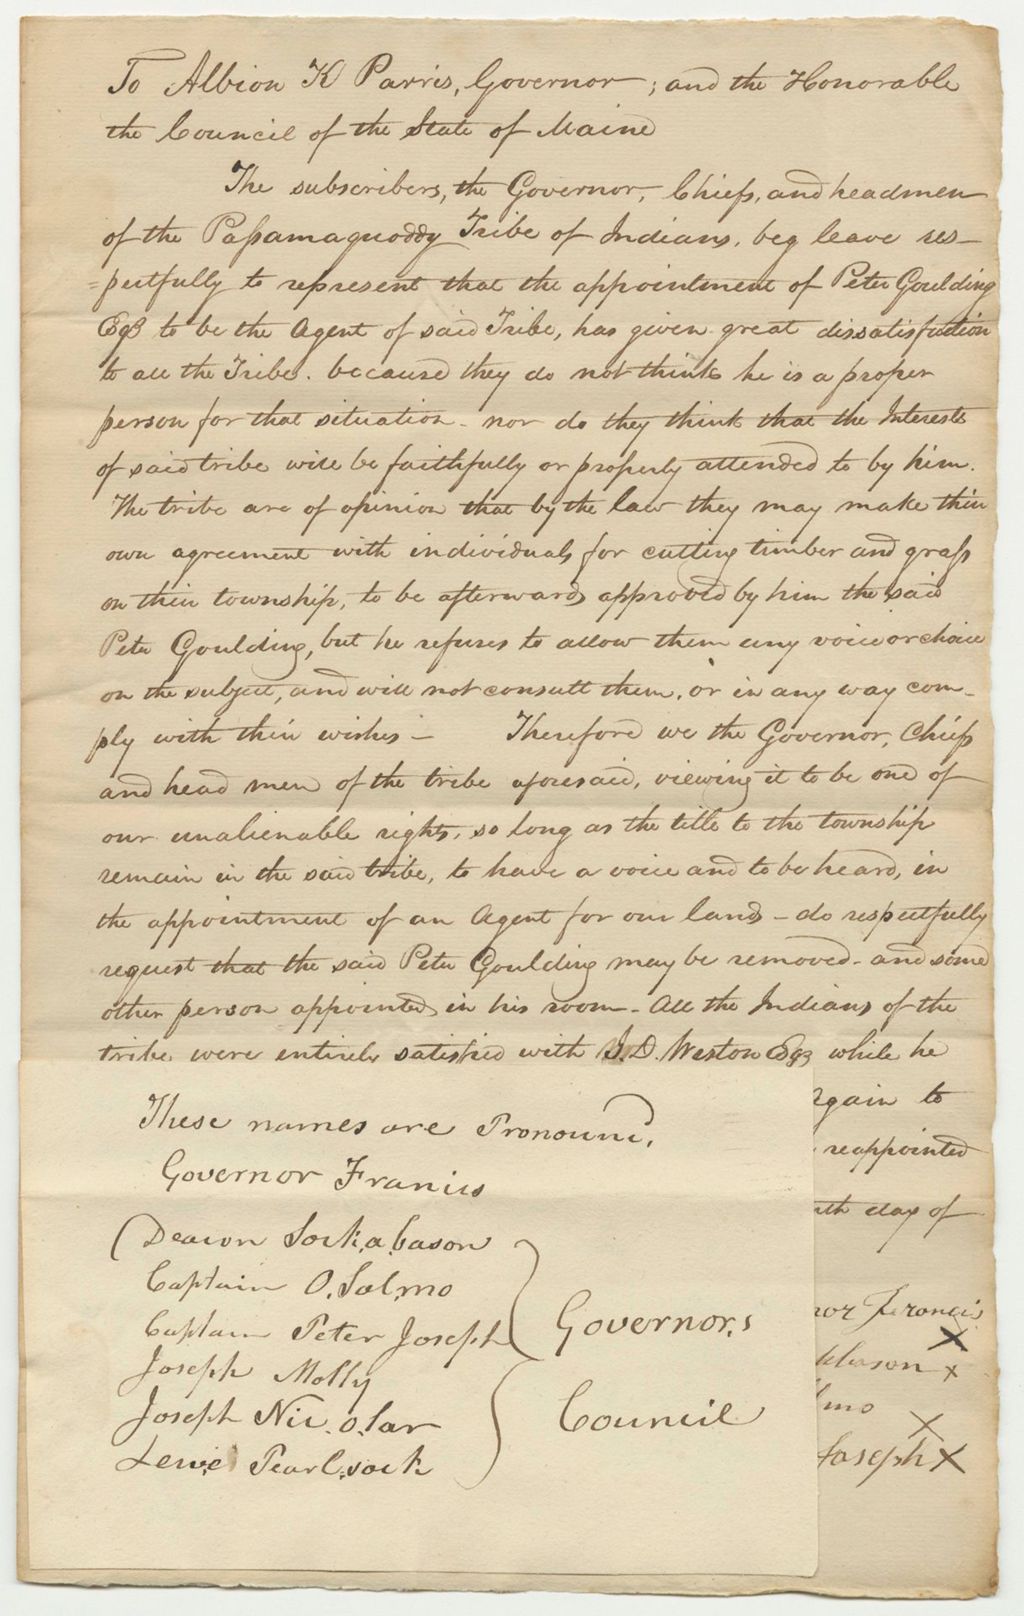 To Albion K Parris, Governor; and the Honorable
the Council of the State of Maine
The subscribers, the Governor, Chiefs, and headmen
of the Passamaquoddy Tribe of Indians, beg leave res-
=pectfully to represent that the appointment of Peter Goulding
Esqr to be the Agent of said Tribe, has given great dissatisfaction
to all the Tribe. because they do not think he is a proper
person for that situation - nor do they think that the Interests
of said tribe will be faithfully or properly attended to by him.
The tribe are of opinion that by the law they may make their
own agreement with individuals for cutting timber and grass
on their township, to be afterwards approved by him the said
Peter Goulding, but he refuses to allow them any voice or choice
on the subject, and will not consult them, or in any way com-
ply with their wishes - Therefore we the Governor, Chiefs
and head men of the tribe aforesaid, viewing it to be one of
our unalienable rights, so long as the title to the township
remain in the said tribe, to have a voice and to be heard, in
the appointment of an Agent for our lands - do respectfully
request that the said Peter Goulding may be removed - and some
other person appointed in his room - All the Indians of the
tribe were entirely satisfied with J. D. Weston Esqr while he
again to
These names are Pronound.
reappointed
Governor Francis
day of
Deacon Sock.a.bason
Captain O. Sal.mo
Captain Peter Joseph
Governor,s
nor Francis
X
Joseph Molly
kbason x
Joseph Nic.o.lar
Council
lmo X
Lewe Pearl.sock
Joseph X